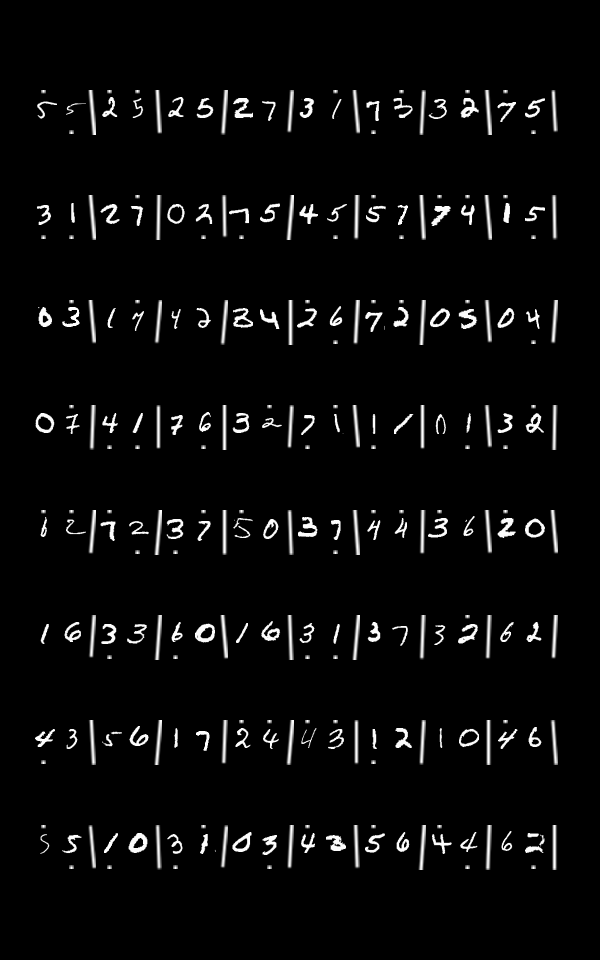 5 5 | 2 5 | 2 5 | 2 7 | 3 1 | 7 3 | 3 2 | 7 5 |
3 1 | 2 7 | 0 2 | 7 5 | 4 5 | 5 7 | 7 4 | 1 5 |
0 3 | 1 7 | 4 2 | 3 4 | 2 6 | 7 2 | 0 5 | 0 4 |
0 7 | 4 1 | 7 6 | 3 2 | 7 1 | 1 1 | 0 1 | 3 2 |
6 2 | 7 2 | 3 7 | 5 0 | 3 7 | 4 4 | 3 6 | 2 0 |
1 6 | 3 3 | 6 0 | 1 6 | 3 1 | 3 7 | 3 2 | 6 2 |
4 3 | 5 6 | 1 7 | 2 4 | 4 3 | 1 2 | 1 0 | 4 6 |
5 5 | 1 0 | 3 1 | 0 3 | 4 3 | 5 6 | 4 4 | 6 2 |